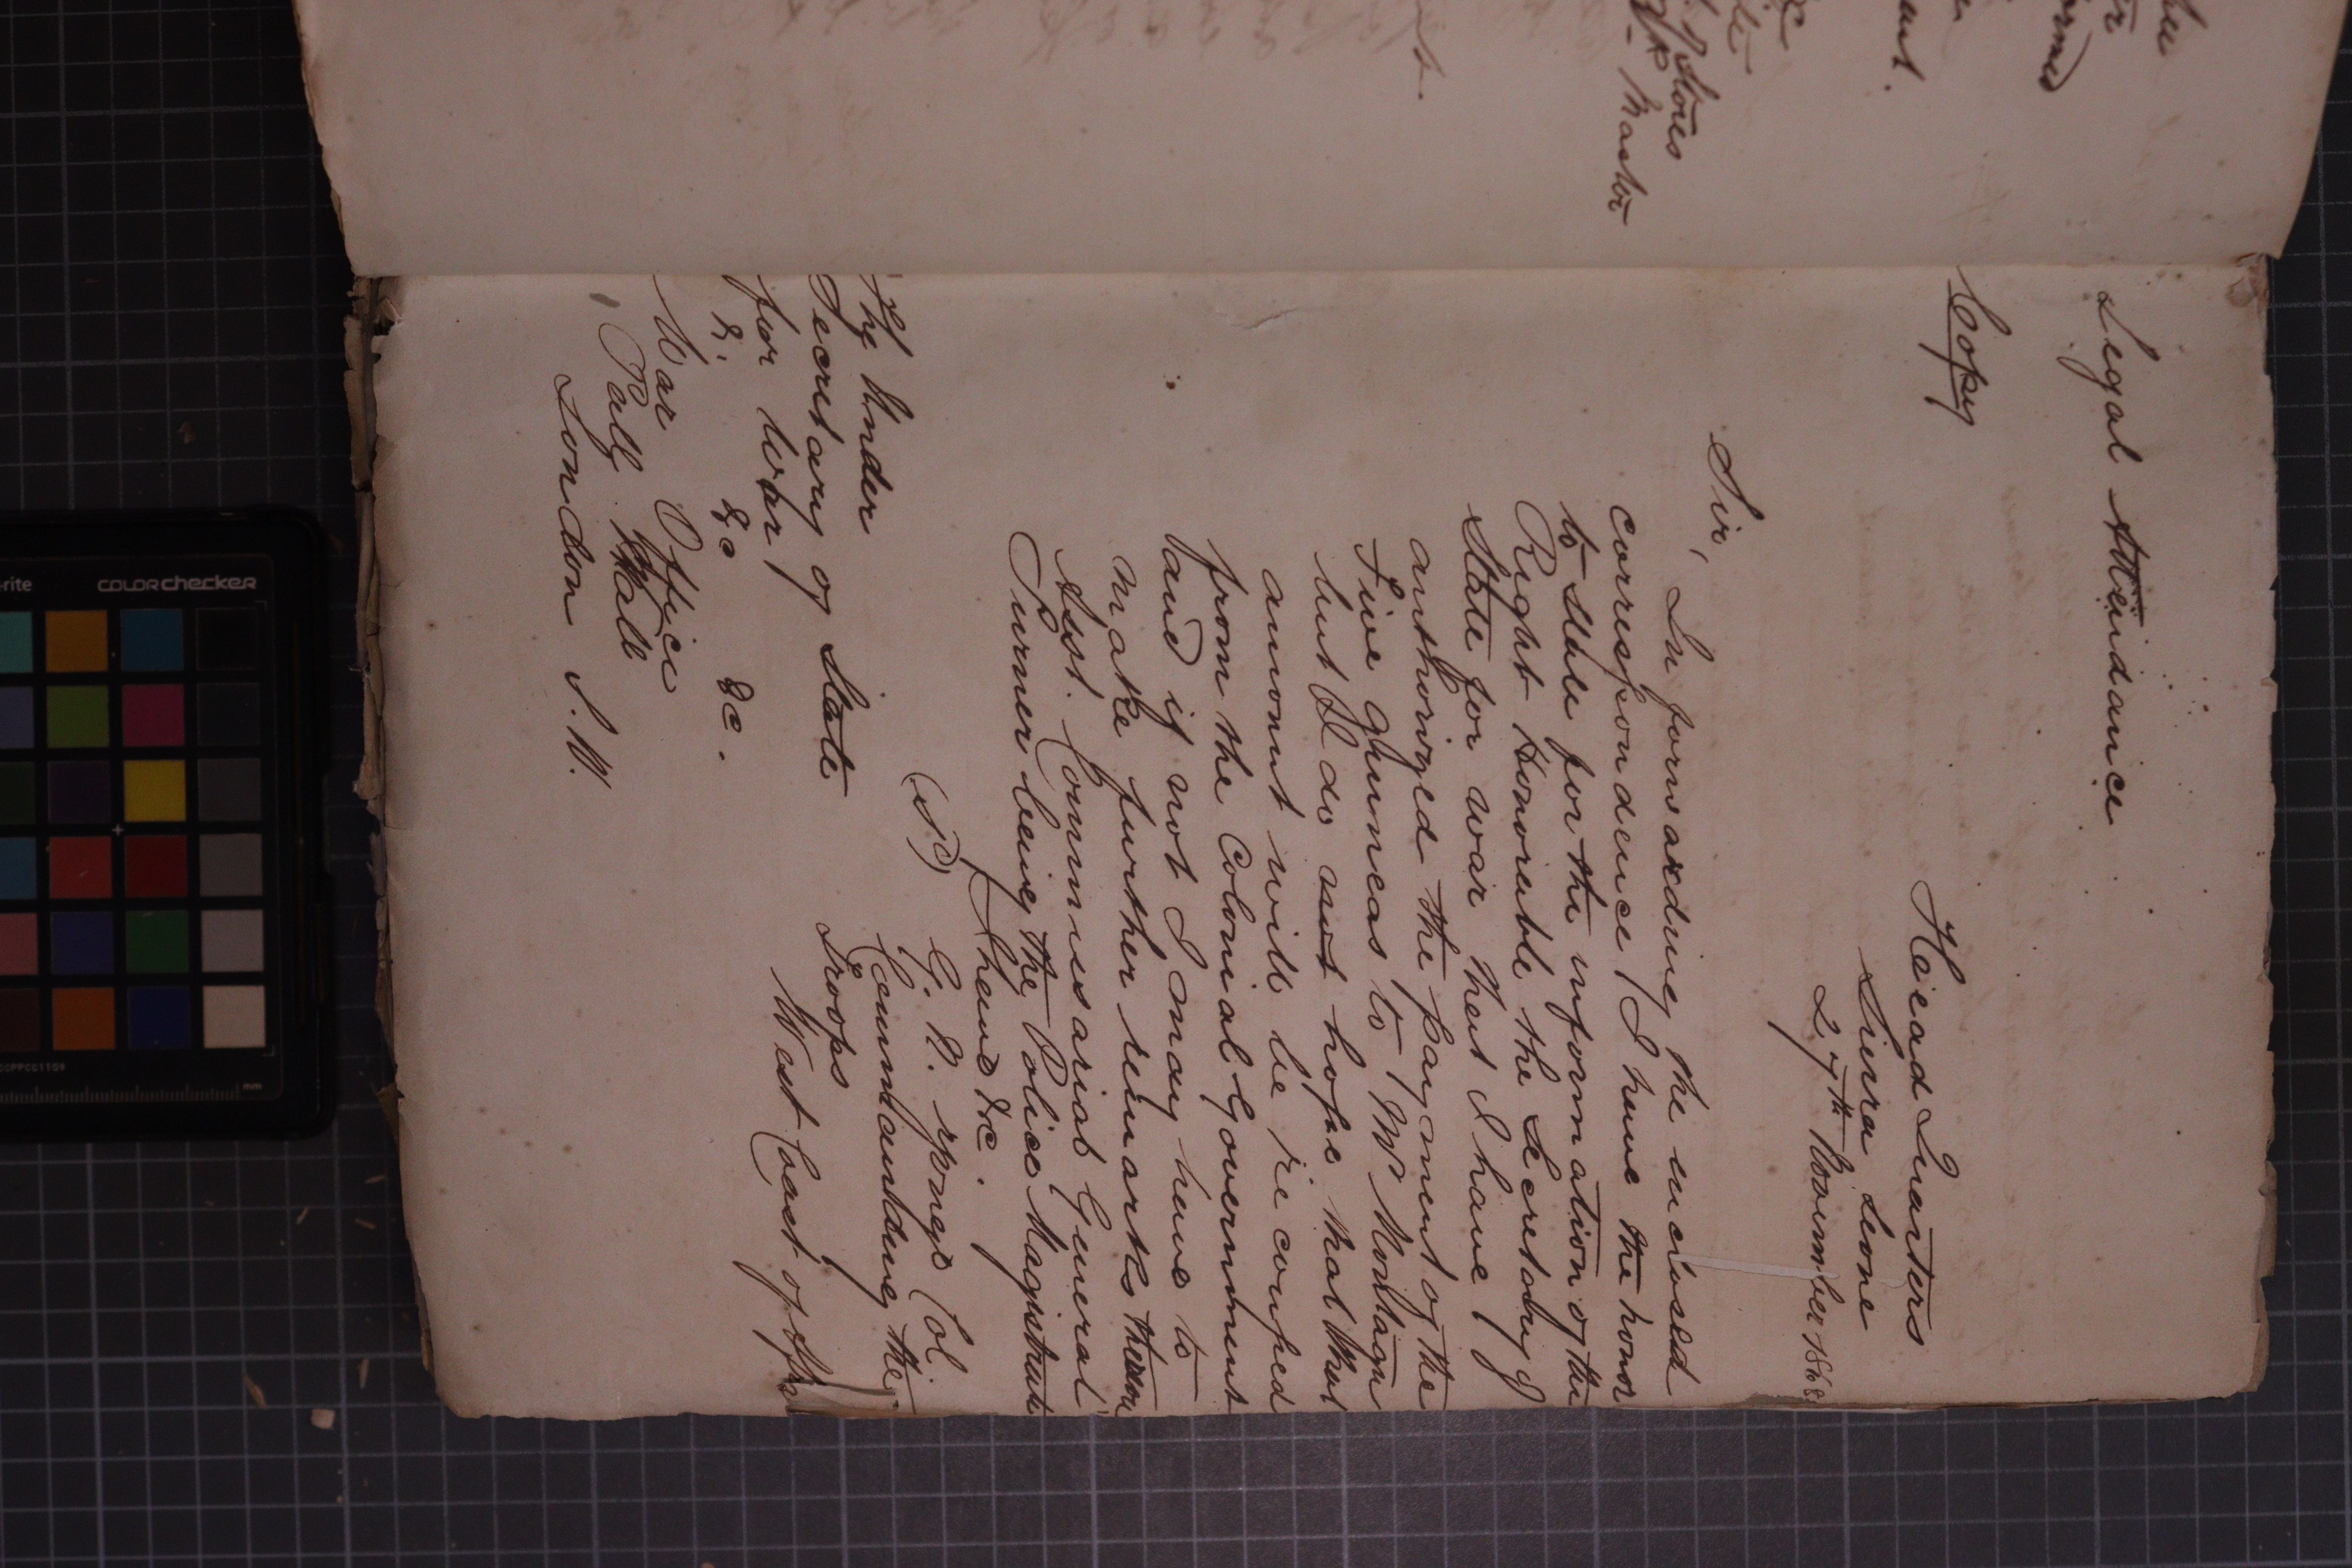 Legal Attendance
Copy
Head Quarters
Sierra Leone
27th November 1868
Sir,
In forwarding the enclosed
correspondence I have the honor
to state for the information of the
Right Honorable the Secretary of
State for war that I have
authorized the payment of the
Five guineas to Mr Montagu
but I do not hope that that
amount will be recouped
from the Colonial Government
and if not I may have to
make further remarks thereon
Asst. Commissariat General
Turner being the Police Magistrate
I have &c.
(sd)
Col
Commanding the
Troops
West Coast of Afri
The Under
Secretary of State
for War
&. &c &c.
War Office
Pall Mall
London S.W.
Stores
Master